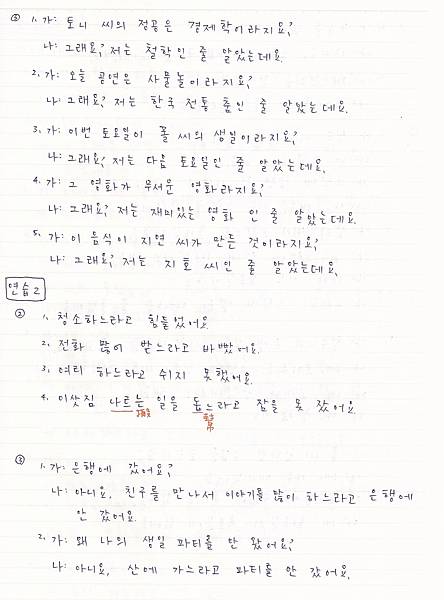 ③ 1. 가: 토니 씨의 전공은 경제학이라지요?
나: 그래요? 저는 철학인 줄 알았는데요.
2. 가: 오늘 공연은 사물놀이라지요?
나: 그래요? 저는 한국 전통 춤인 줄 알았는데요.
3. 가: 이번 토요일이 폴 씨의 생일이라지요?
나: 그래요? 저는 다음 토요일인 줄 알았는데요.
4. 가: 그 영화가 무서운 영화라지요?
나: 그래요? 저는 재미있는 영화 인 줄 알았는데요.
5. 가: 이 음식이 지연 씨가 만든 것이라지요?
나: 그래요? 저는 지호 씨인 줄 알았는데요.
연습 2
② 1. 청소하느라고 힘들었어요.
2. 전화 많이 받느라고 바빴어요.
3. 여티 하느라고 쉬지 못했어요.
4. 이삿짐 나르는 일을 돕느라고 잠을 못 잤어요.
搬 幫
③ 1. 가: 은행에 갔어요?
나: 아니요, 친구를 만나서 이야기를 많이 하느라고 은행에
안 갔어요.
2. 가: 왜 나의 생일 파티를 안 왔어요?
나: 아니요, 산에 가느라고 파티를 안 갔어요.